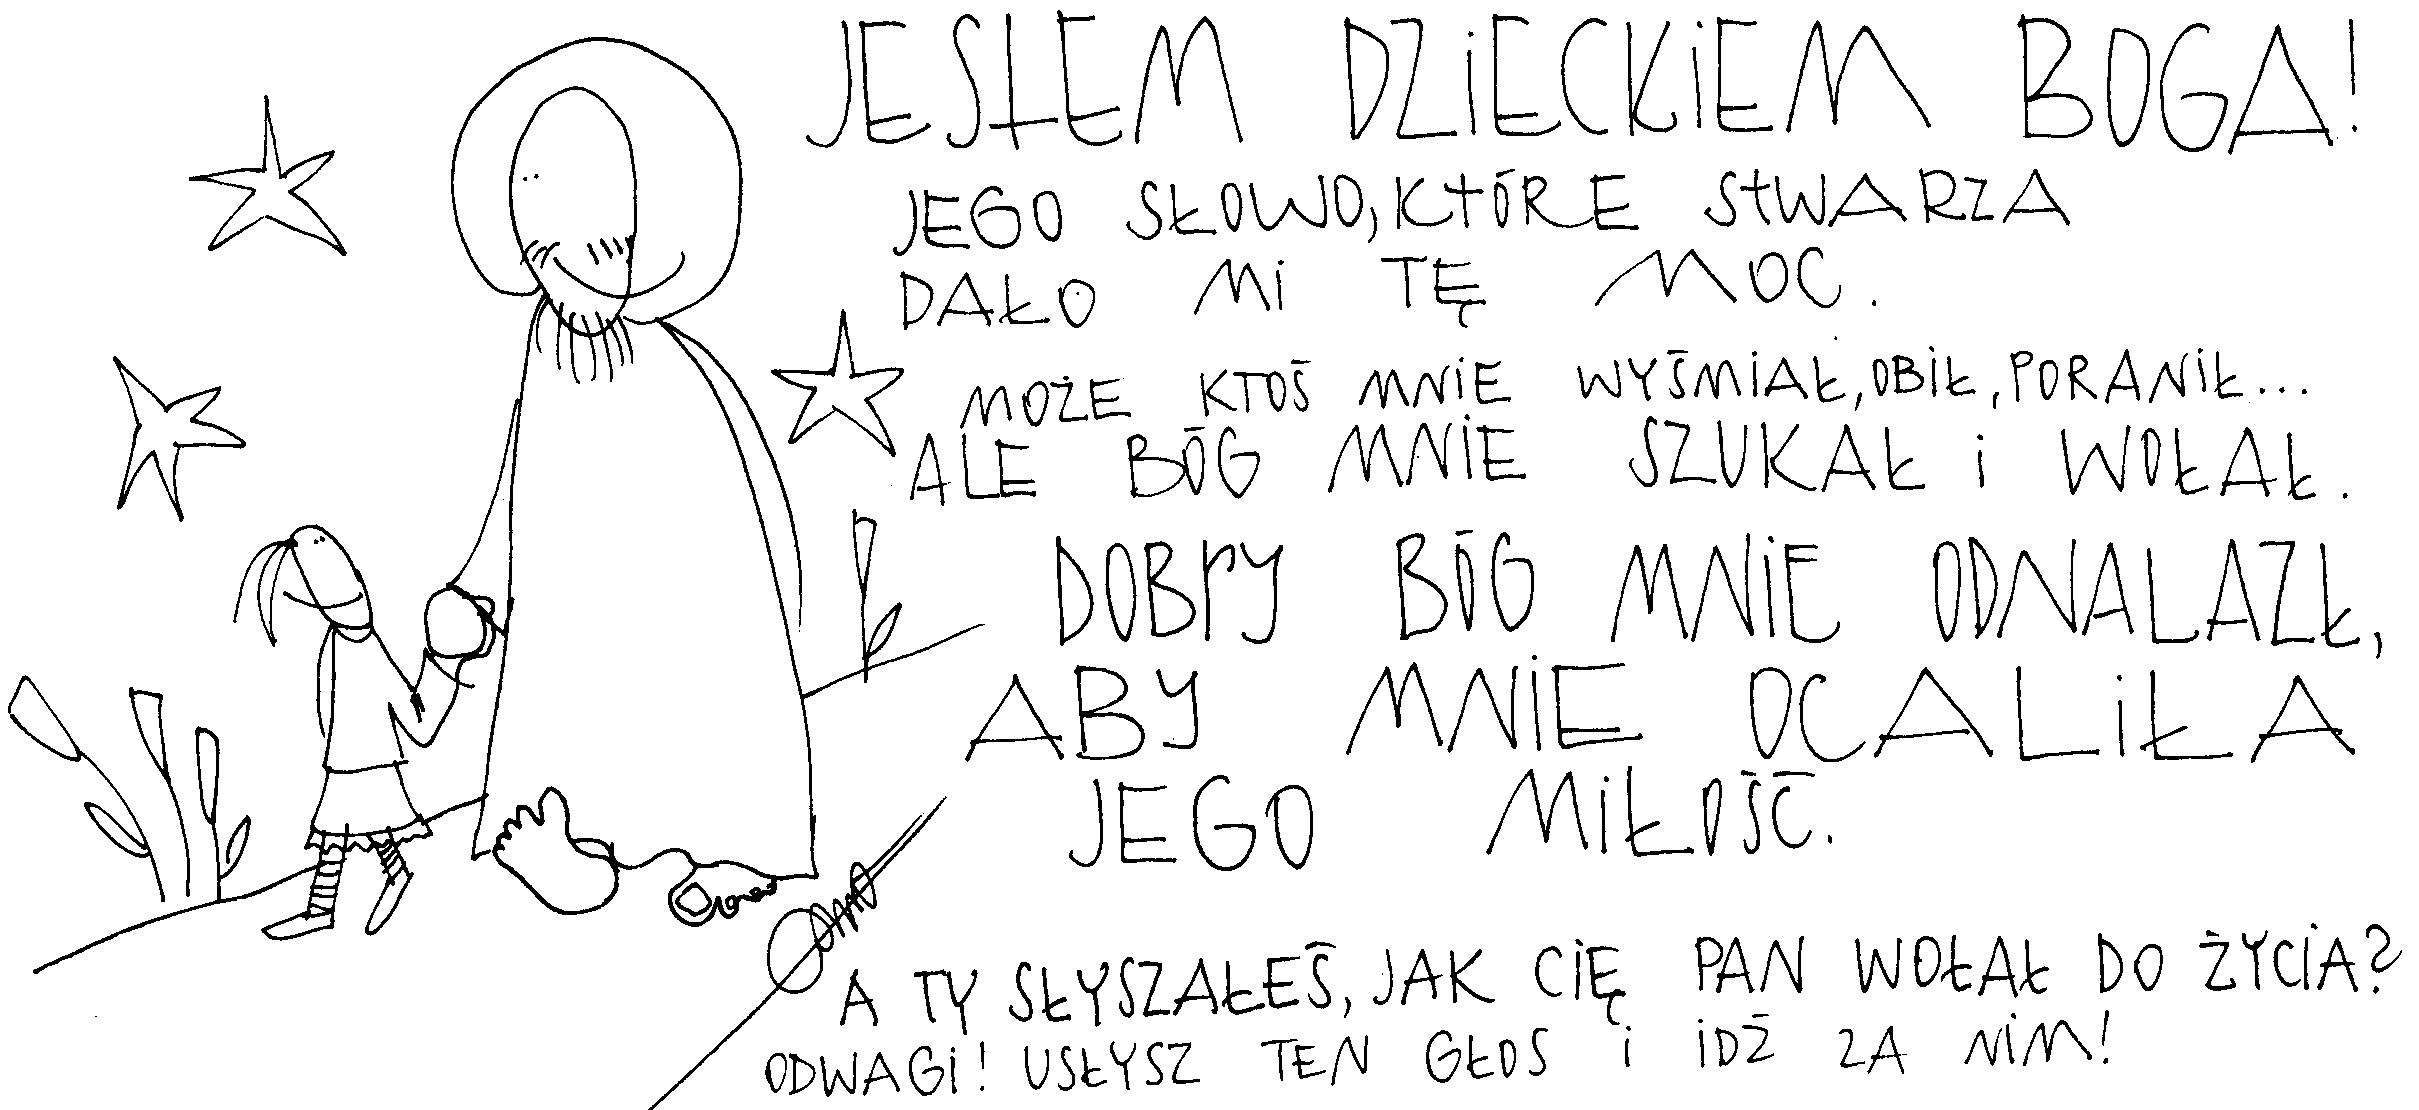 JESTEM DZIECKIEM BOGA!
JEGO SŁOWO, KTÓRE STWARZA
DAŁO MI TĘ MOC.
MOŻE KTOŚ MNIE WYŚMIAŁ, OBIŁ, PORANIŁ...
ALE BÓG MNIE SZUKAŁ i WOŁAŁ.
DOBRY BÓG MNIE ODNALAZŁ,
ABY MNIE OCALIŁA
JEGO MIŁOŚĆ.
A TY SŁYSZAŁEŚ, JAK CIĘ PAN WOŁAŁ DO ŻYCIA?
ODWAGI! USŁYSZ TEN GŁOS i IDŹ ZA NIM!